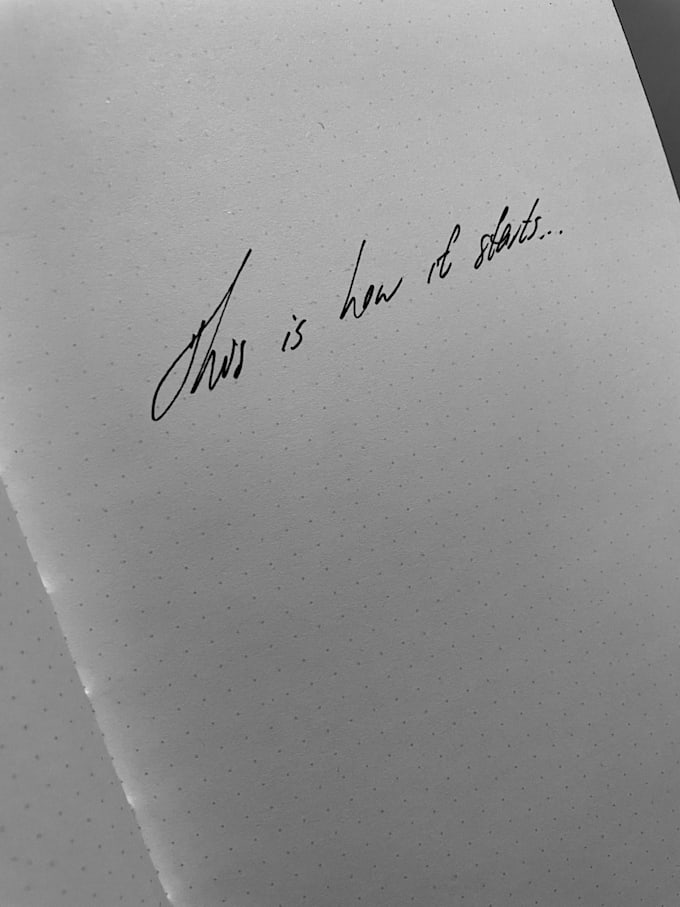 This is how it starts...